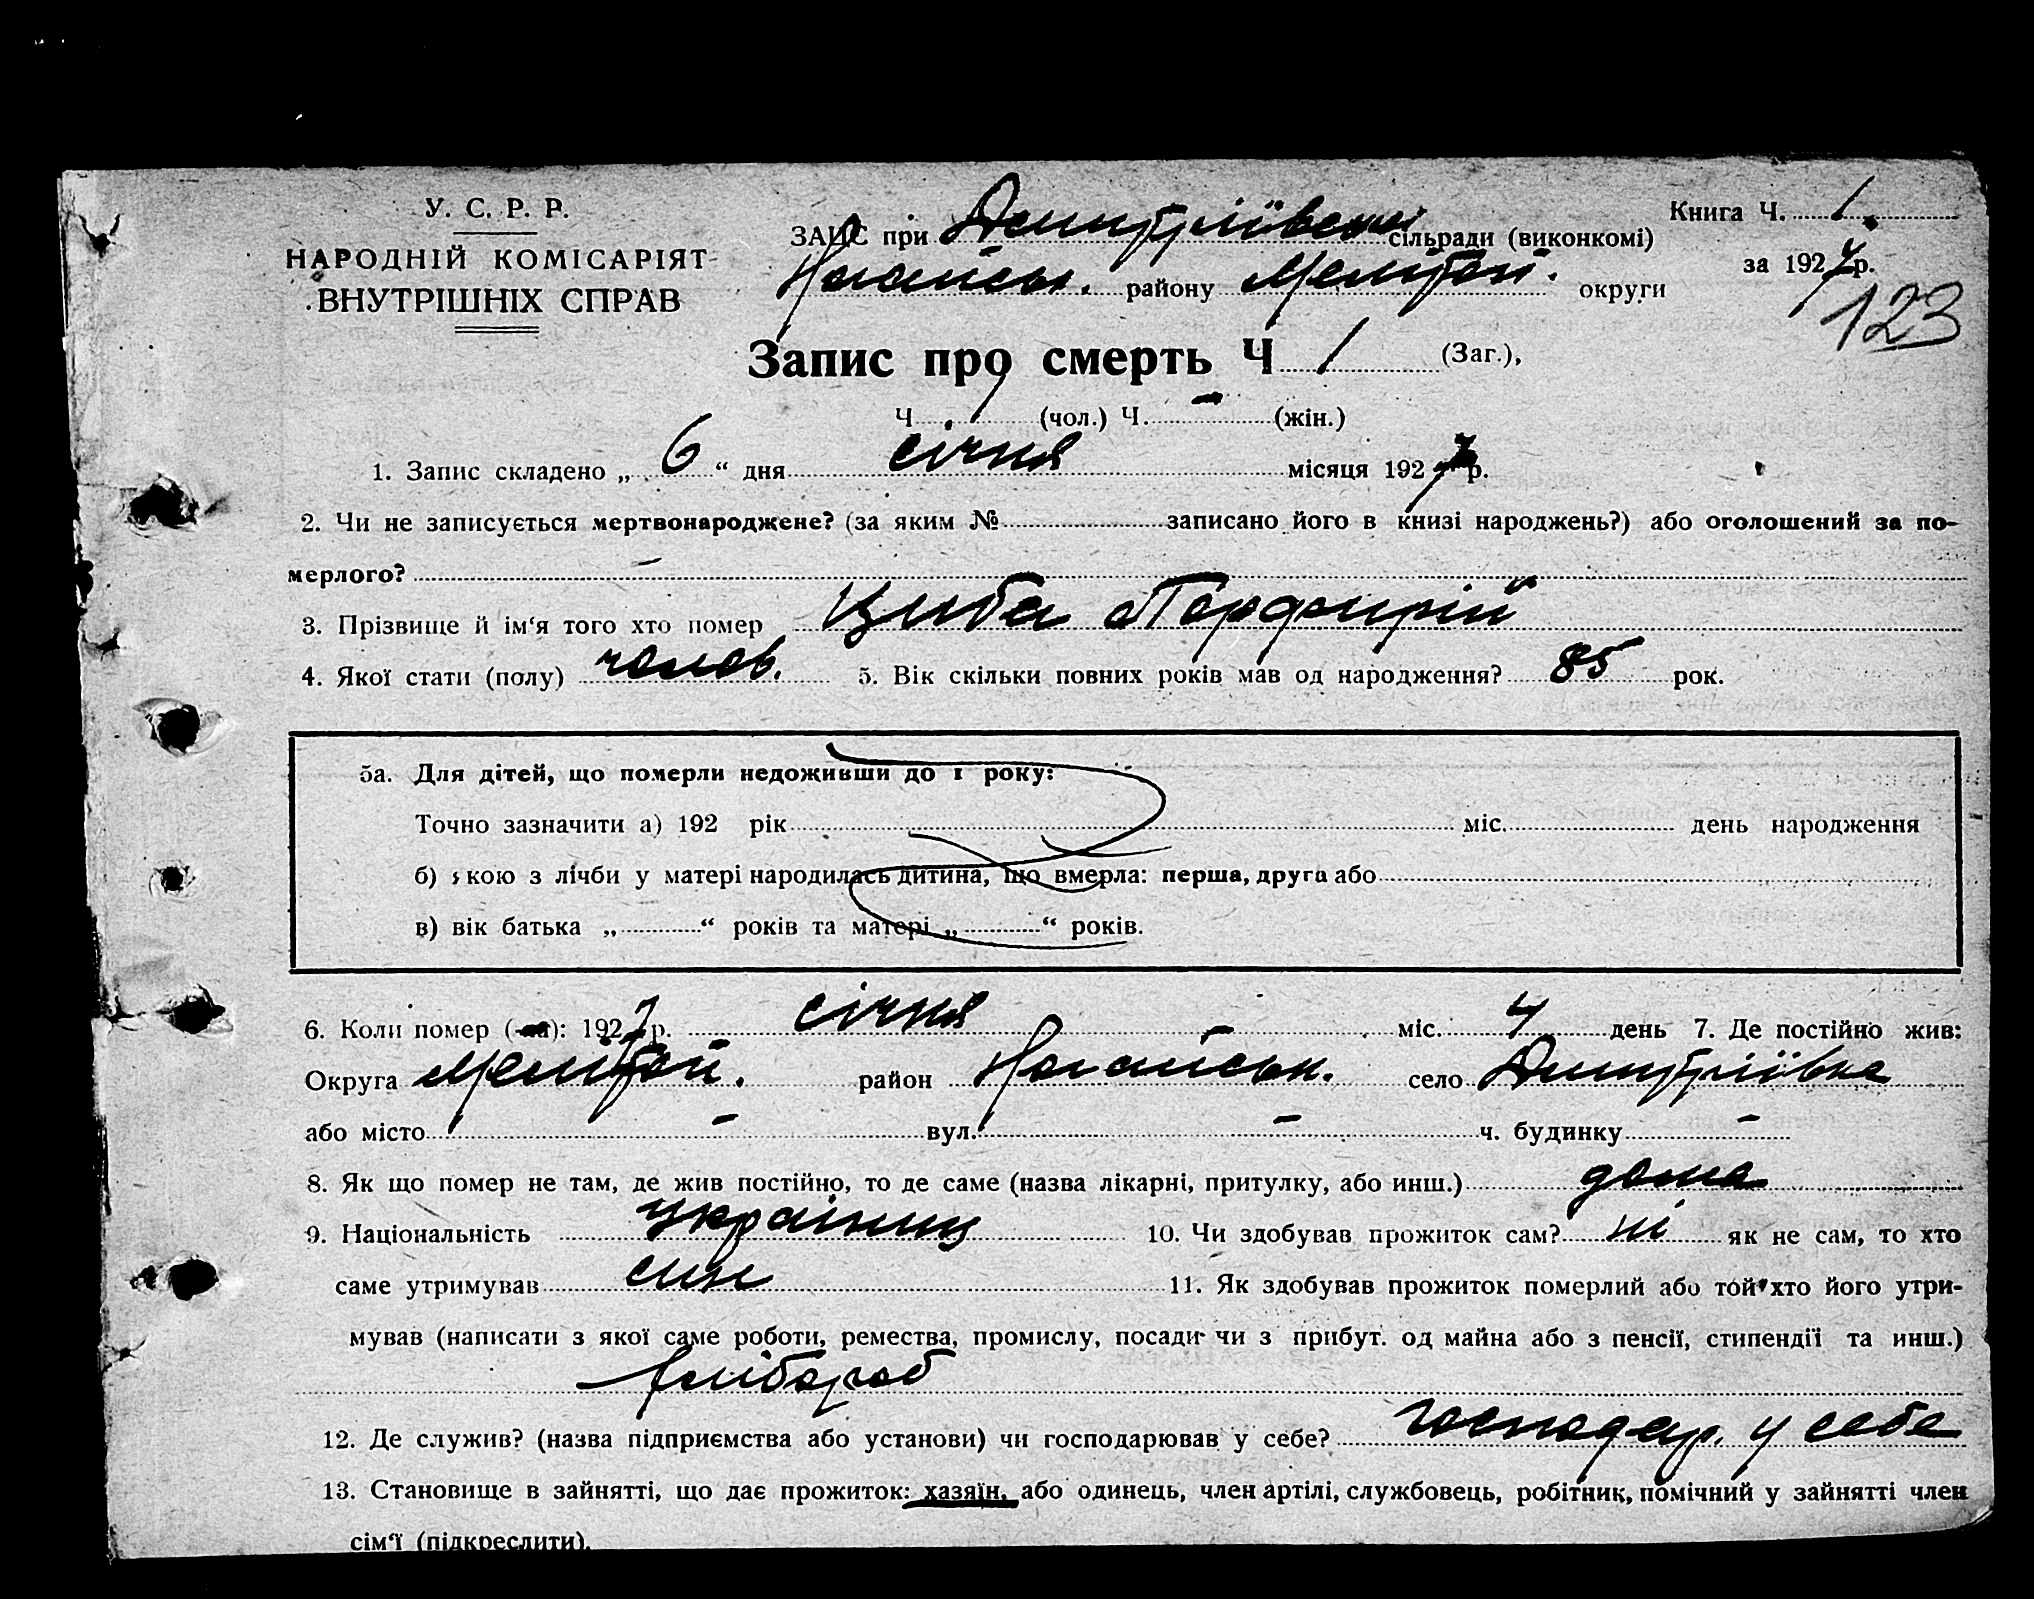 У. С. Р. Р.
НАРОДНІЙ КОМІСАРІЯТ
ВНУТРІШНІХ СПРАВ
ЗАГС при Дмитріївській сільради (виконкомі)
Ногайськ. району Мелітоп. округи
Книга Ч. 1.
за 1927 р.
123
Запис про смерть Ч 1 (Заг.),
Ч 1 (чол.) Ч. – (жін.)
1. Запис складено „ 6 “ дня січня місяця 1927 р.
2. Чи не записується мертвонароджене? (за яким № записано його в книзі народжень?) або оголошений за по-
мерлого? –
3. Прізвище й ім'я того хто помер Циба Порфирій
4. Якої стати (полу) чолов. 5. Вік скільки повних років мав од народження? 85 рок.
5а. Для дітей, що померли недоживши до 1 року:
Точно зазначити а) 192 рік міс. день народження
б) якою з лічби у матері народилась дитина, що вмерла: перша, друга або
в) вік батька „ “ років та матері „ “ років.
6. Коли помер (-ла): 1927 р. січня міс. 4 день 7. Де постійно жив:
Округа Мелітоп. район Ногайськ. село Дмитріївка
або місто – вул. – ч. будинку –
8. Як що помер не там, де жив постійно, то де саме (назва лікарні, притулку, або инш.) дома
9. Національність українец 10. Чи здобував прожиток сам? ні як не сам, то хто
саме утримував син 11. Як здобував прожиток померлий або той хто його утри-
мував (написати з якої саме роботи, ремества, промислу, посади чи з прибут. од майна або з пенсії, стипендії та инш.)
хлібороб
12. Де служив? (назва підприємства або установи) чи господарював у себе? господар. у себе
13. Становище в зайнятті, що дає прожиток: хазяїн, або одинець, член артілі, службовець, робітник, помічний у зайнятті член
сім'ї (підкреслити).